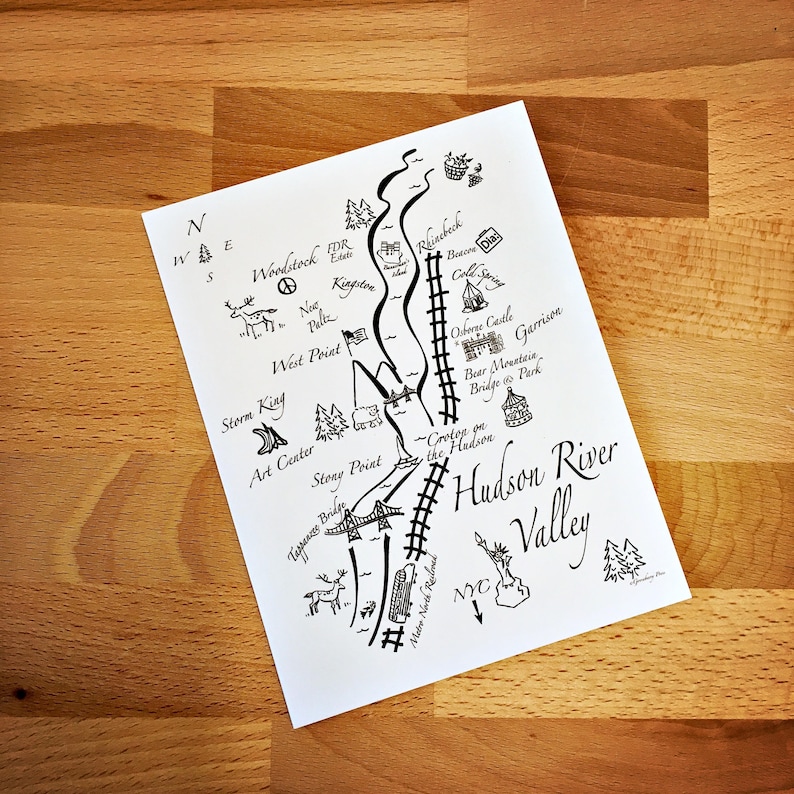 N
W
E
S
Woodstock
FDR
Estate
Kingston
New
Paltz
Bannerman's
Island
Rhinebeck
Beacon
Dia:
Cold Spring
Osborne Castle
Garrison
West Point
Bear Mountain
Bridge & Park
Storm King
Art Center
Stony Point
Croton on
the Hudson
Hudson River
Valley
Tappanzee Bridge
Metro North Railroad
NYC